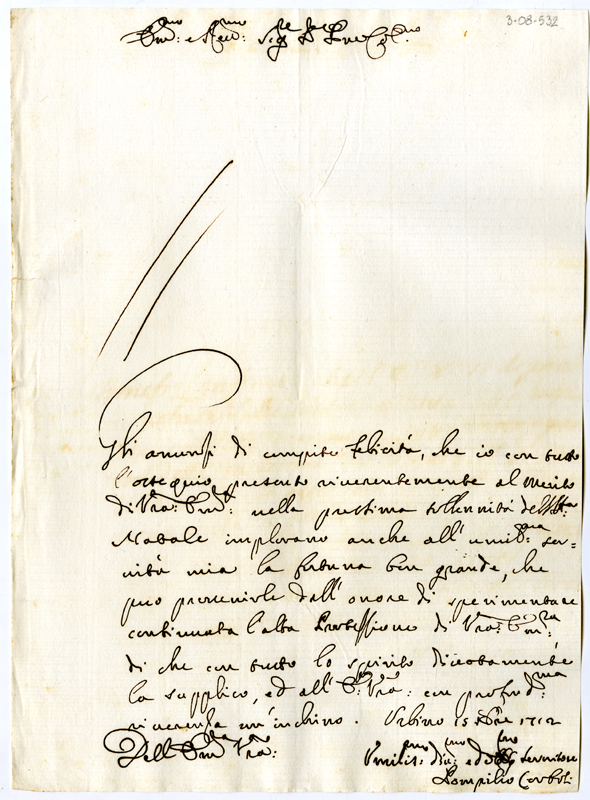 3-08-532
Em:mo e Reu:mo Sig:re Pne Col:mo
Gli annunzi di compita felicità, che io con tutto
l'ossequio presento riverentemente al merito
di Vra: Em:za nella prossima sollennità del SS:mo
Natale implorano anche all'umil:ma ser=
vitù mia la fortuna ben grande, che
può provenirle dall'onore di sperimentare
continuata l'alta Protezzione di Vra: Em:za
di che con tutto lo spirito divotamente
la supplico, ed all'E:za Vra: con profond:ma
riverenza m'inchino. Urbino 15 Xbre 1712
Dell'Em:za Vra:
Umiliss:mo div:mo ed obb:mo servitore
Pompilio Corboli